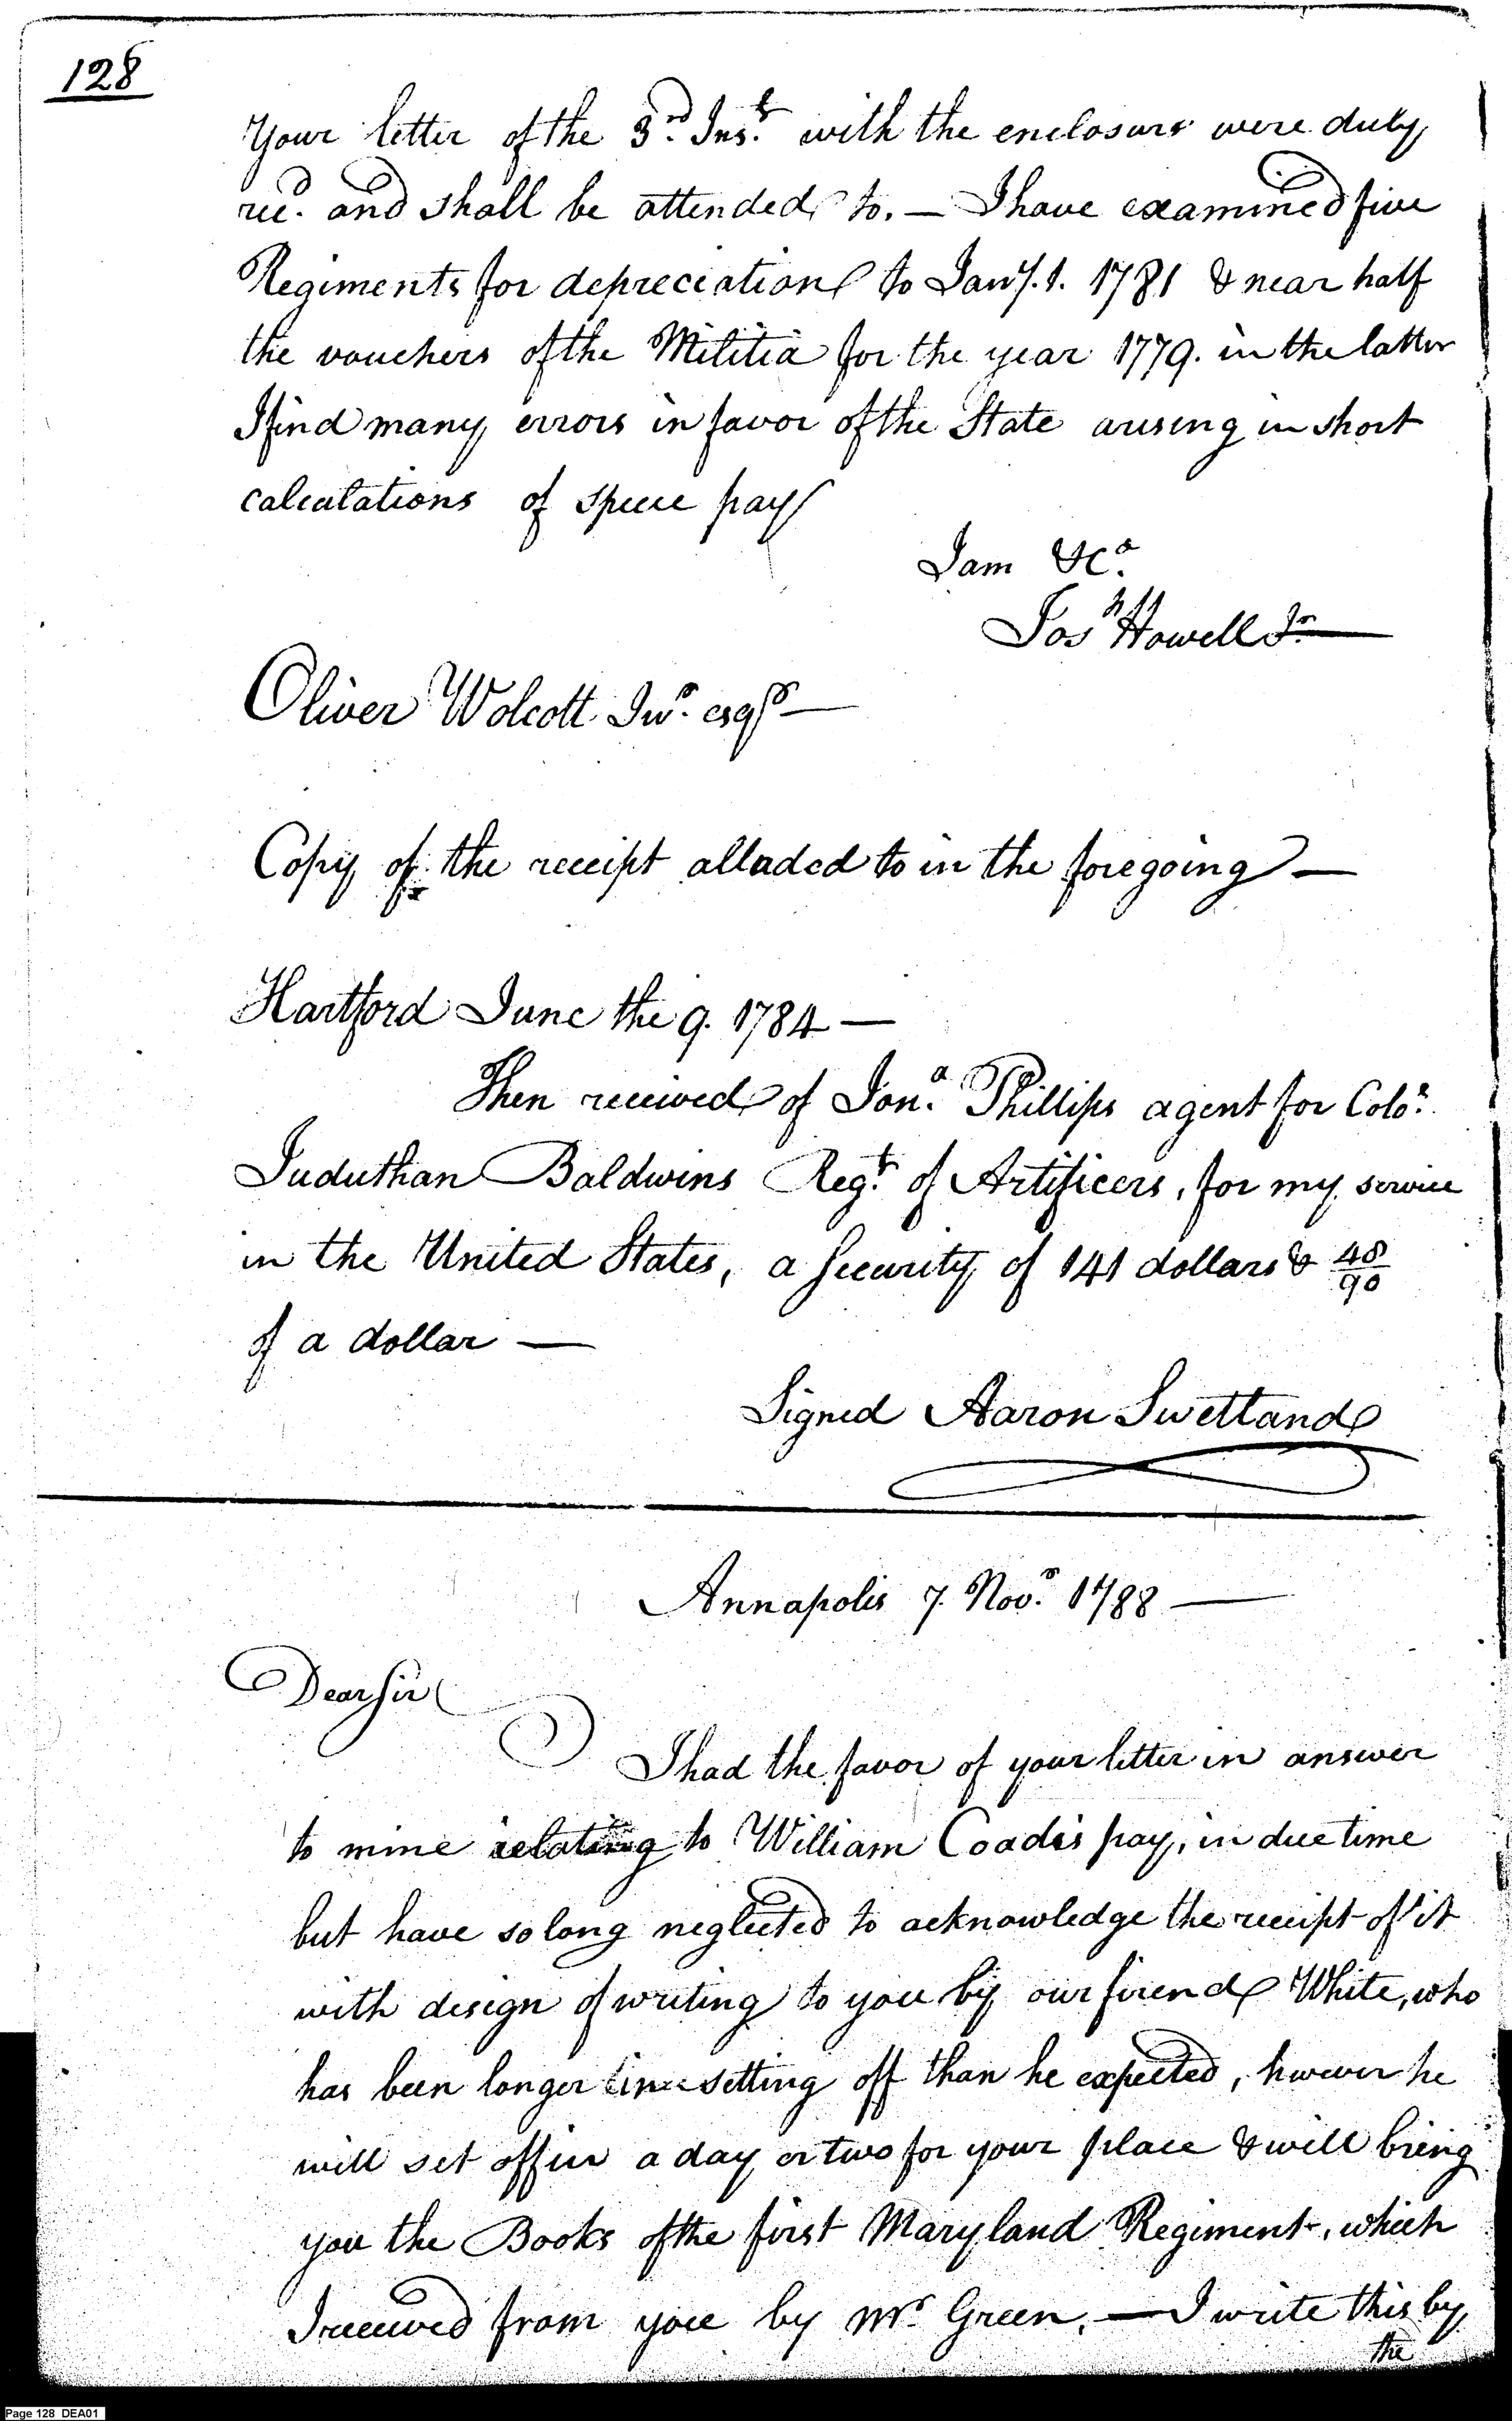 128
Your letter of the 3.rd Ins.t with the enclosure were duly
rec.d and shall be attended to. — I have examined five
Regiments for depreciation to Jany. 1. 1781 & near half
the vouchers of the Militia for the year 1779. in the latter
I find many errors in favor of the State arising in short
calculations of specie pay
I am &c.a
Jos.h Howell Jr.
Oliver Wolcott Jun.r esqr —
Copy of the receipt alluded to in the foregoing —
Hartford June the 9. 1784 —
Then received of Jon.a Phillips agent for Colo.
Juduthan Baldwins Reg.t of Artificers, for my service
in the United States, a security of 141 dollars & 48/90
of a dollar —
Signed Aaron Swetland
Annapolis 7. Nov.r 1788 —
Dear Sir
I had the favor of your letter in answer
to mine relating to William Coadis pay, in due time
but have so long neglected to acknowledge the receipt of it
with design of writing to you by our friend White, who
has been longer in setting off than he expected, however he
will set off in a day or two for your place & will bring
you the Books of the first Maryland Regiment, which
I received from you by Mr. Green. — I write this by
the
Page 128 DEA01